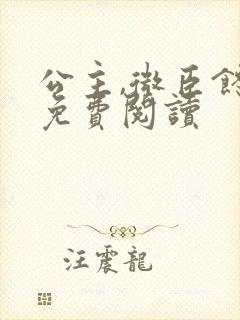 公主,微臣
免費閱讀
汪震龍